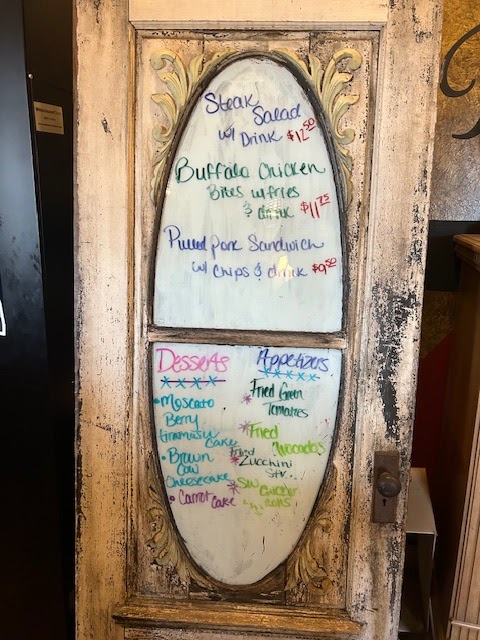 Steak
Salad
w/ Drink $12.50
Buffalo Chicken
Bites w/fries
& drink $11.75
Pulled pork Sandwich
w/ chips & drink $9.50
Desserts
Appetizers
• Moscato
Berry
Cake
• Brown
Cow
Cheesecake
• Carrot Cake
Fried Green
Tomatoes
* Fried
Avocados
Fried
* Zucchini
Str..
* SW